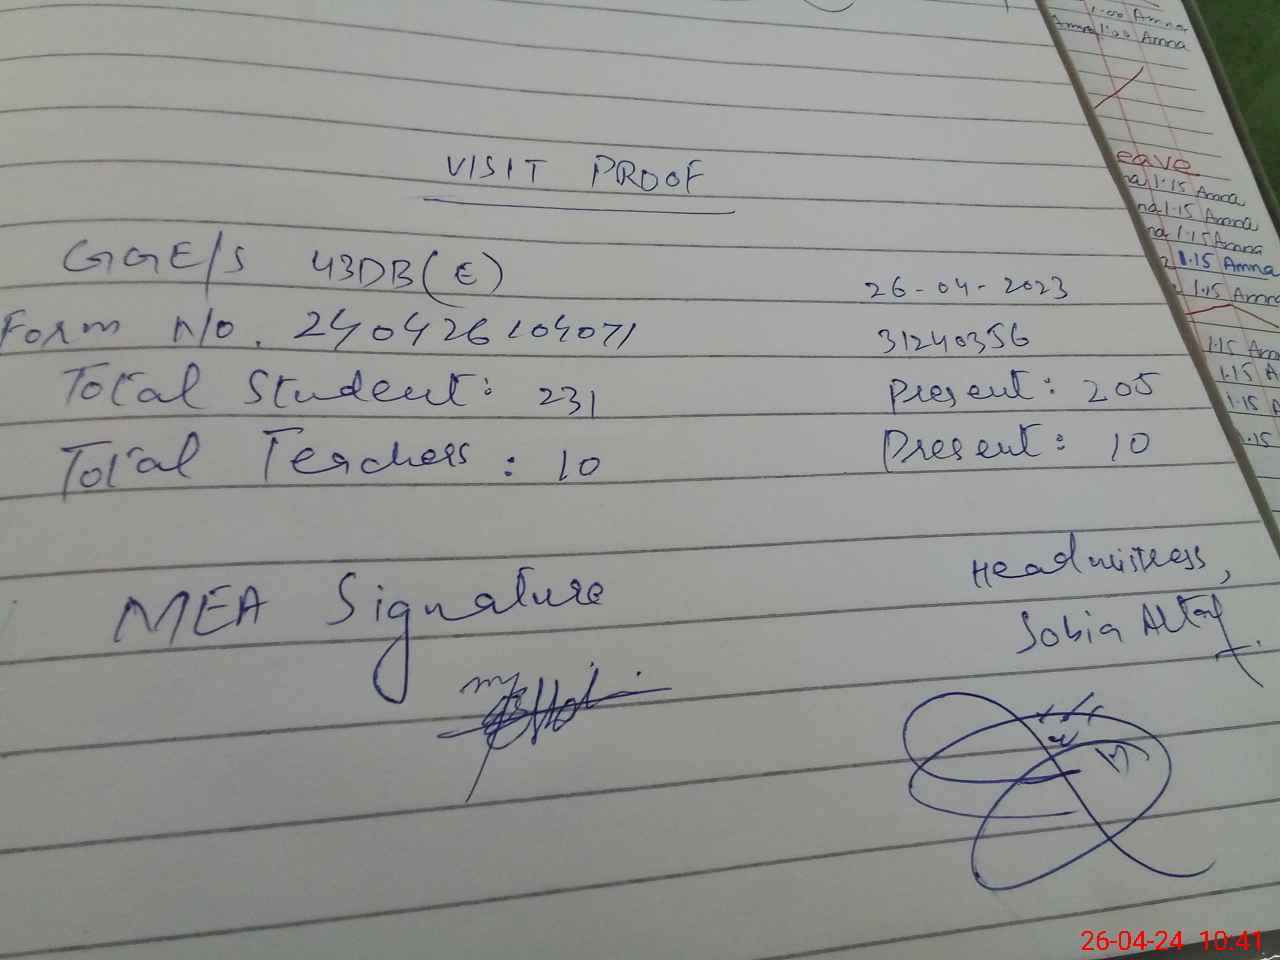 1:00 Amna
Amna 1:00 Amna
VISIT PROOF
eave
na 1.15 Amna
na 1.15 Amna
na 1.15 Amna
1.15 Amna
1.15 Amna
1.15 Am
1.15 A
1.15 A
1.15
GGE/S 43DB(E)
26-04-2023
Form n/o. 240426104071
31240356
Total Student: 231
Present: 205
Total Teachers: 10
Present: 10
MEA Signature
Headmistress,
Sobia Altaf
26-04-24 10:41